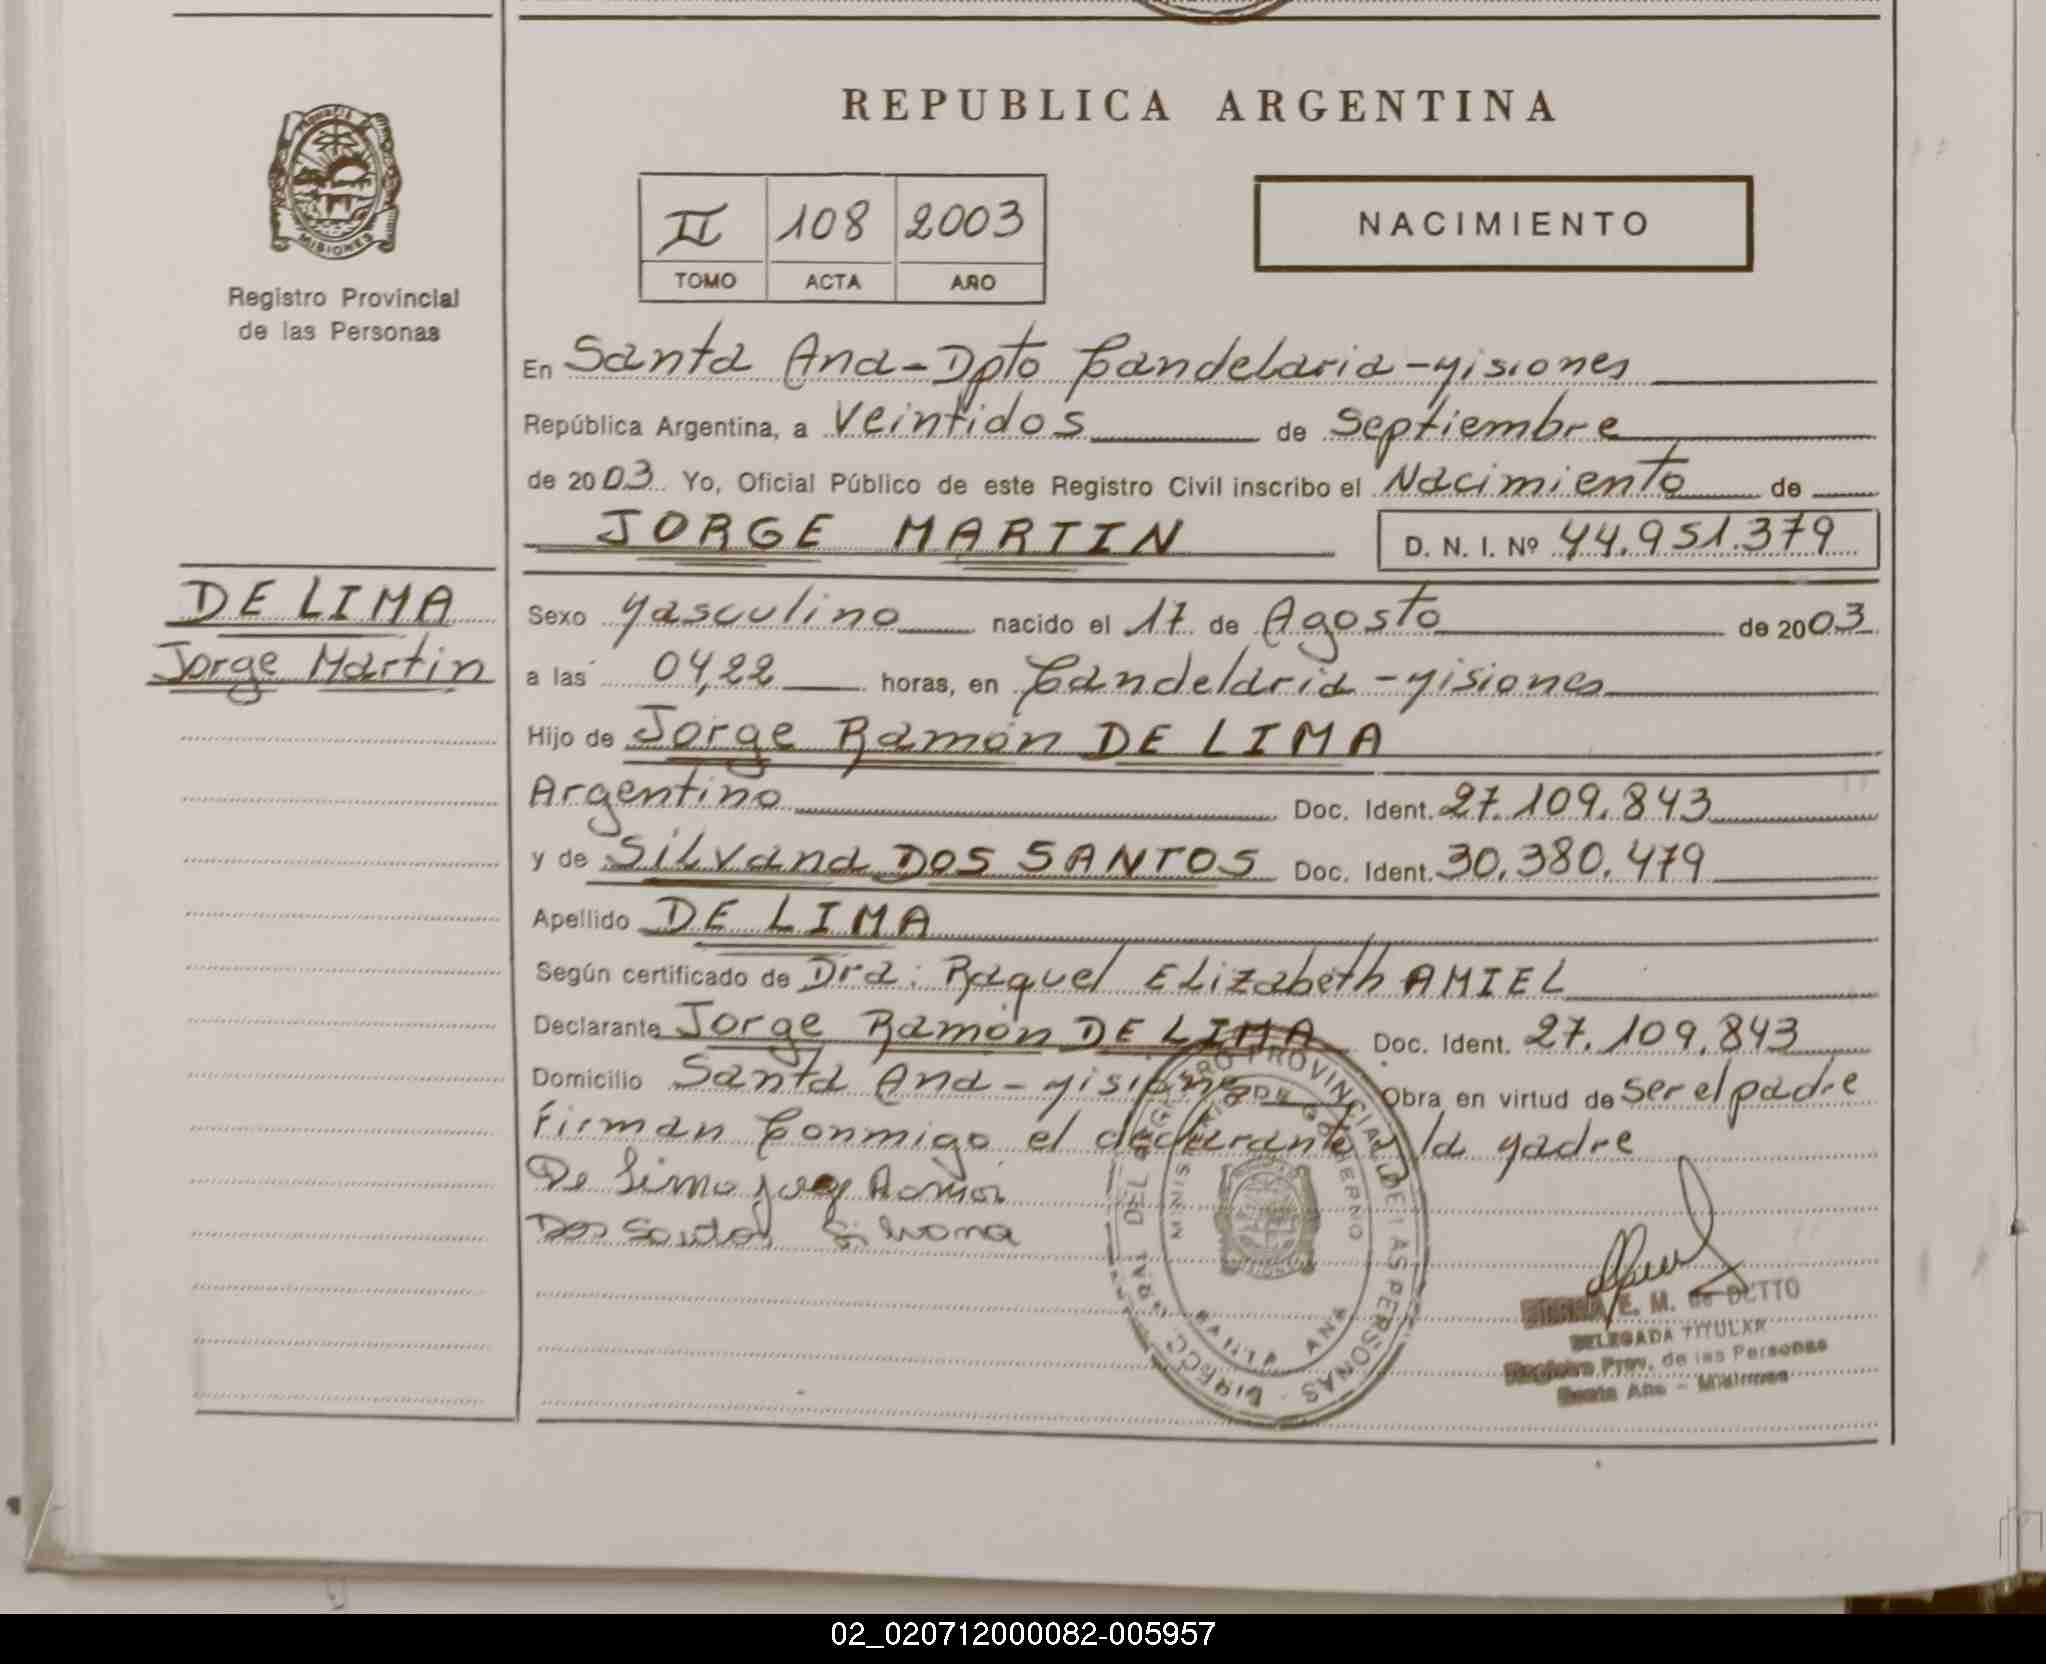 REPUBLICA ARGENTINA
MISIONES
Registro Provincial
de las Personas
II 108 2003
TOMO ACTA AÑO
NACIMIENTO
En Santa Ana - Dpto Candelaria - Misiones
República Argentina, a Veintidos de Septiembre
de 2003 Yo, Oficial Público de este Registro Civil inscribo el Nacimiento de
JORGE MARTIN D. N. I. Nº 44.951.379
DE LIMA
Jorge Martin
Sexo Masculino nacido el 17 de Agosto de 2003
a las 04,22 horas, en Candelaria - Misiones
Hijo de Jorge Ramón DE LIMA
Argentino Doc. Ident. 27.109.843
y de Silvana DOS SANTOS Doc. Ident. 30.380.479
Apellido DE LIMA
Según certificado de Dra: Raquel Elizabeth AMIEL
Declarante Jorge Ramón DE LIMA Doc. Ident. 27.109.843
Domicilio Santa Ana - Misiones Obra en virtud de ser el padre
Firman Conmigo el declarante y la Madre
De Lima Jorge Ramon
Dos Santos Silvana
DIRECC. GRAL. DEL REGISTRO PROVINCIAL DE LAS PERSONAS
MINISTERIO DE GOBIERNO
SANTA ANA
E. M. de DETTO
DELEGADA TITULAR
Registro Prov. de las Personas
Santa Ana - Misiones
02_020712000082-005957